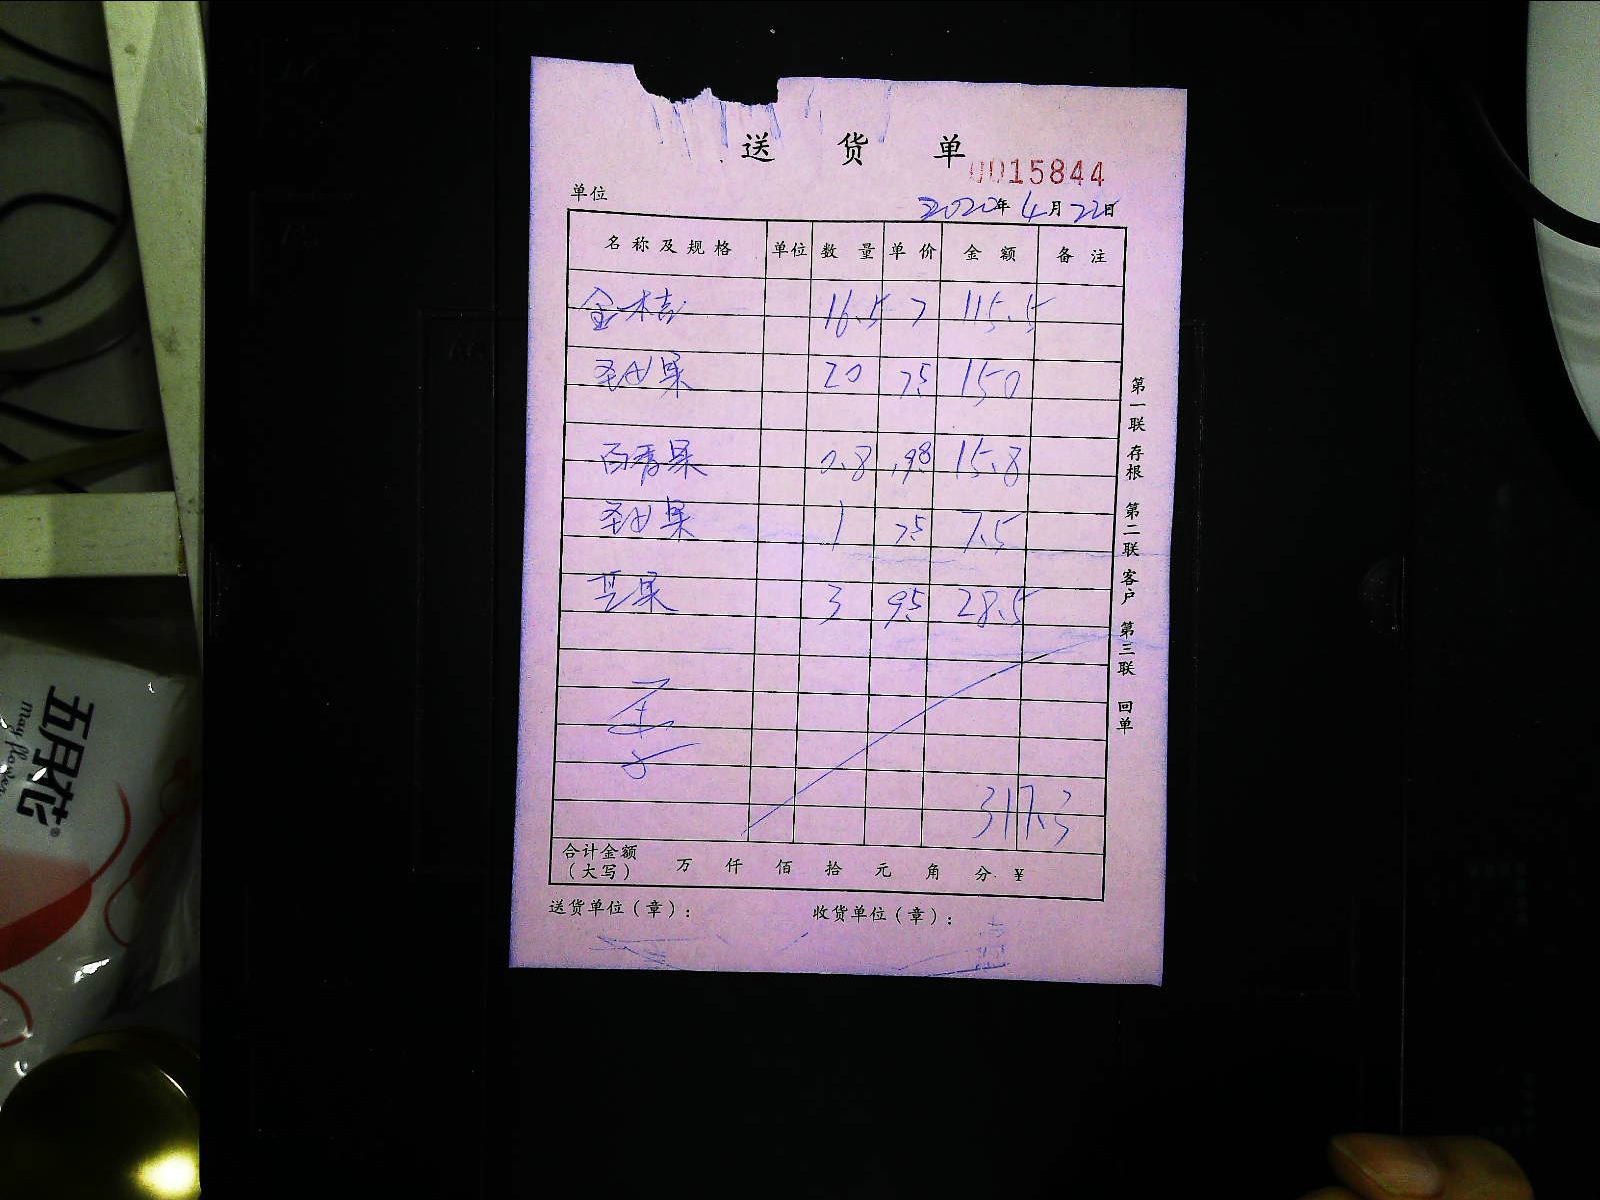 送 货 单
0015844
单位
2020年 4月 22日
名称及规格 单位 数量 单价 金额 备注
金桔 16.5 7 115.5
圣女果 20 7.5 150
百香果 0.8 15.8
圣女果 1 7.5 7.5
芒果 3 9.5 28.5
317.3
合计金额（大写） 万 仟 佰 拾 元 角 分 ¥
送货单位（章）： 收货单位（章）：
第一联 存根 第二联 客户 第三联 回单
五月花
May flower